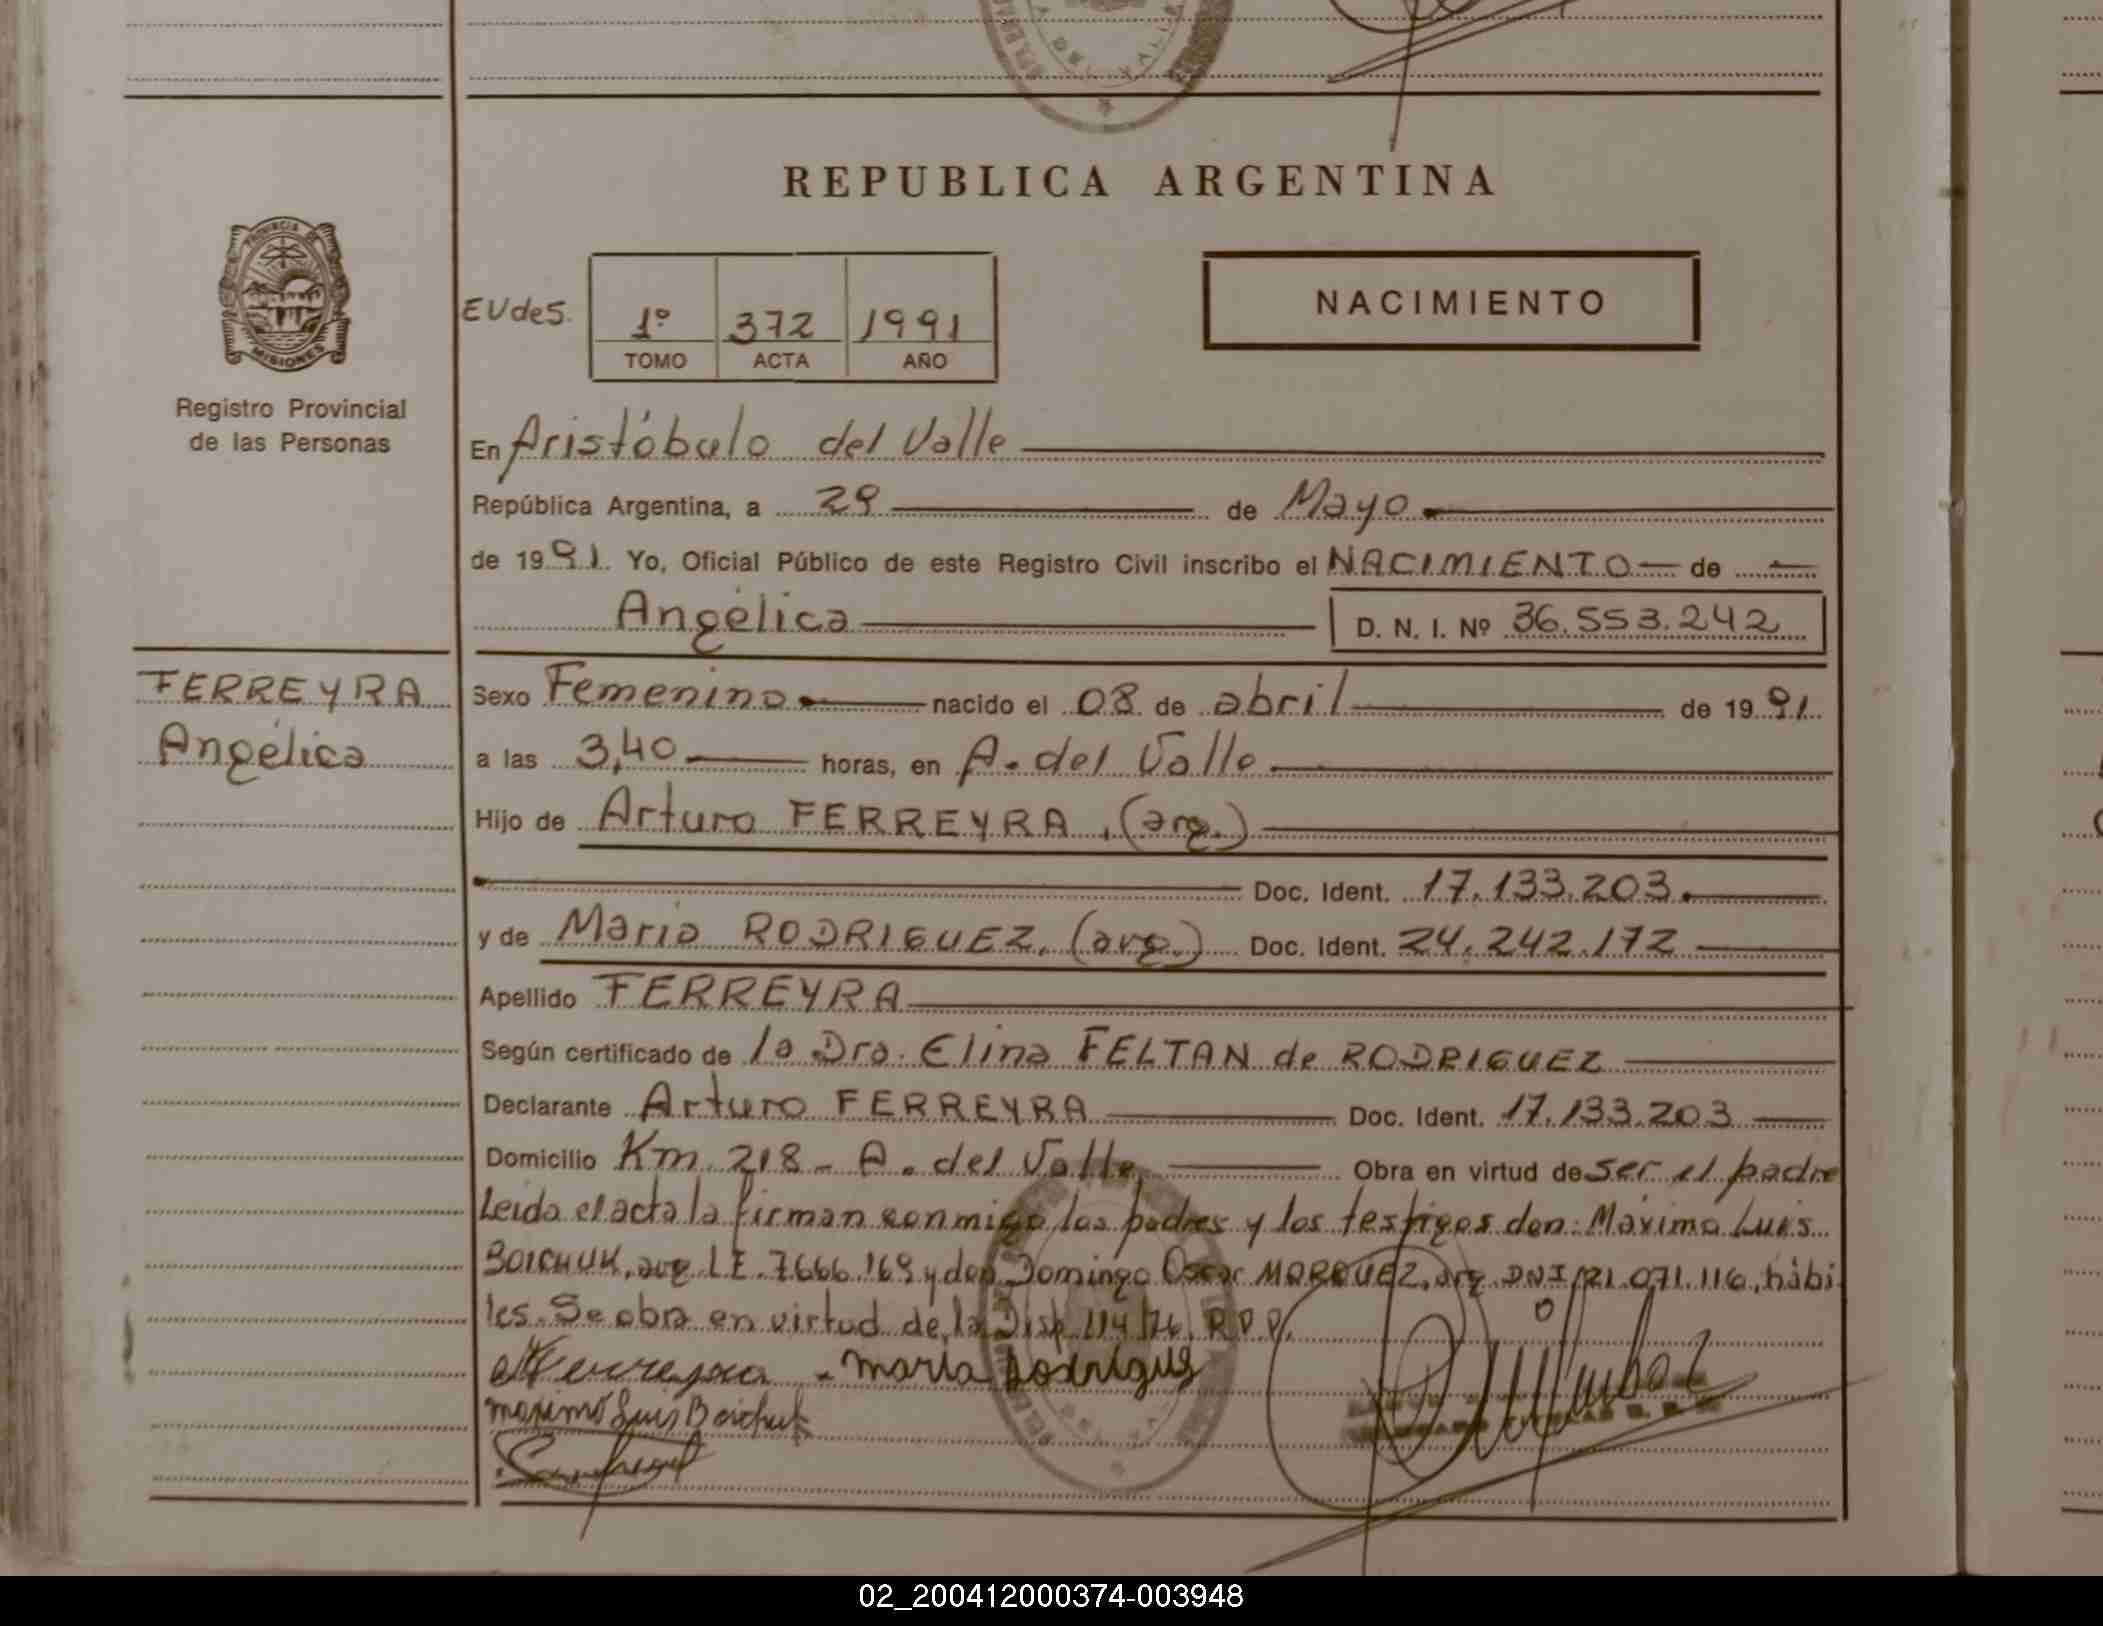 REPUBLICA ARGENTINA
PROVINCIA DE
MISIONES
Registro Provincial
de las Personas
EUdeS.
1º 372 1991
TOMO ACTA AÑO
NACIMIENTO
En Aristóbulo del Valle
República Argentina, a 29 de Mayo
de 1991. Yo, Oficial Público de este Registro Civil inscribo el NACIMIENTO de
Angélica D. N. I. Nº 36.553.242
FERREYRA
Angélica
Sexo Femenino nacido el 08 de abril de 1991.
a las 3,40 horas, en A. del Valle
Hijo de Arturo FERREYRA, (arg.)
Doc. Ident. 17.133.203.
y de María RODRIGUEZ, (arg.) Doc. Ident. 24.242.172
Apellido FERREYRA
Según certificado de la Dra. Elina FELTAN de RODRIGUEZ
Declarante Arturo FERREYRA Doc. Ident. 17.133.203
Domicilio Km. 218 - A. del Valle Obra en virtud de ser el padre
Leida el acta la firman conmigo los padres y los testigos don: Máximo Luis
BOICHUK, arg. LE. 7.666.169 y don Domingo Oscar MARQUEZ, arg. DNI 21.071.116, hábi
les. Se obra en virtud de la Disp. 114/76 R.P.P.
Ferreyra - maria Rodrigues
maximo Luis Boichuk
02_200412000374-003948